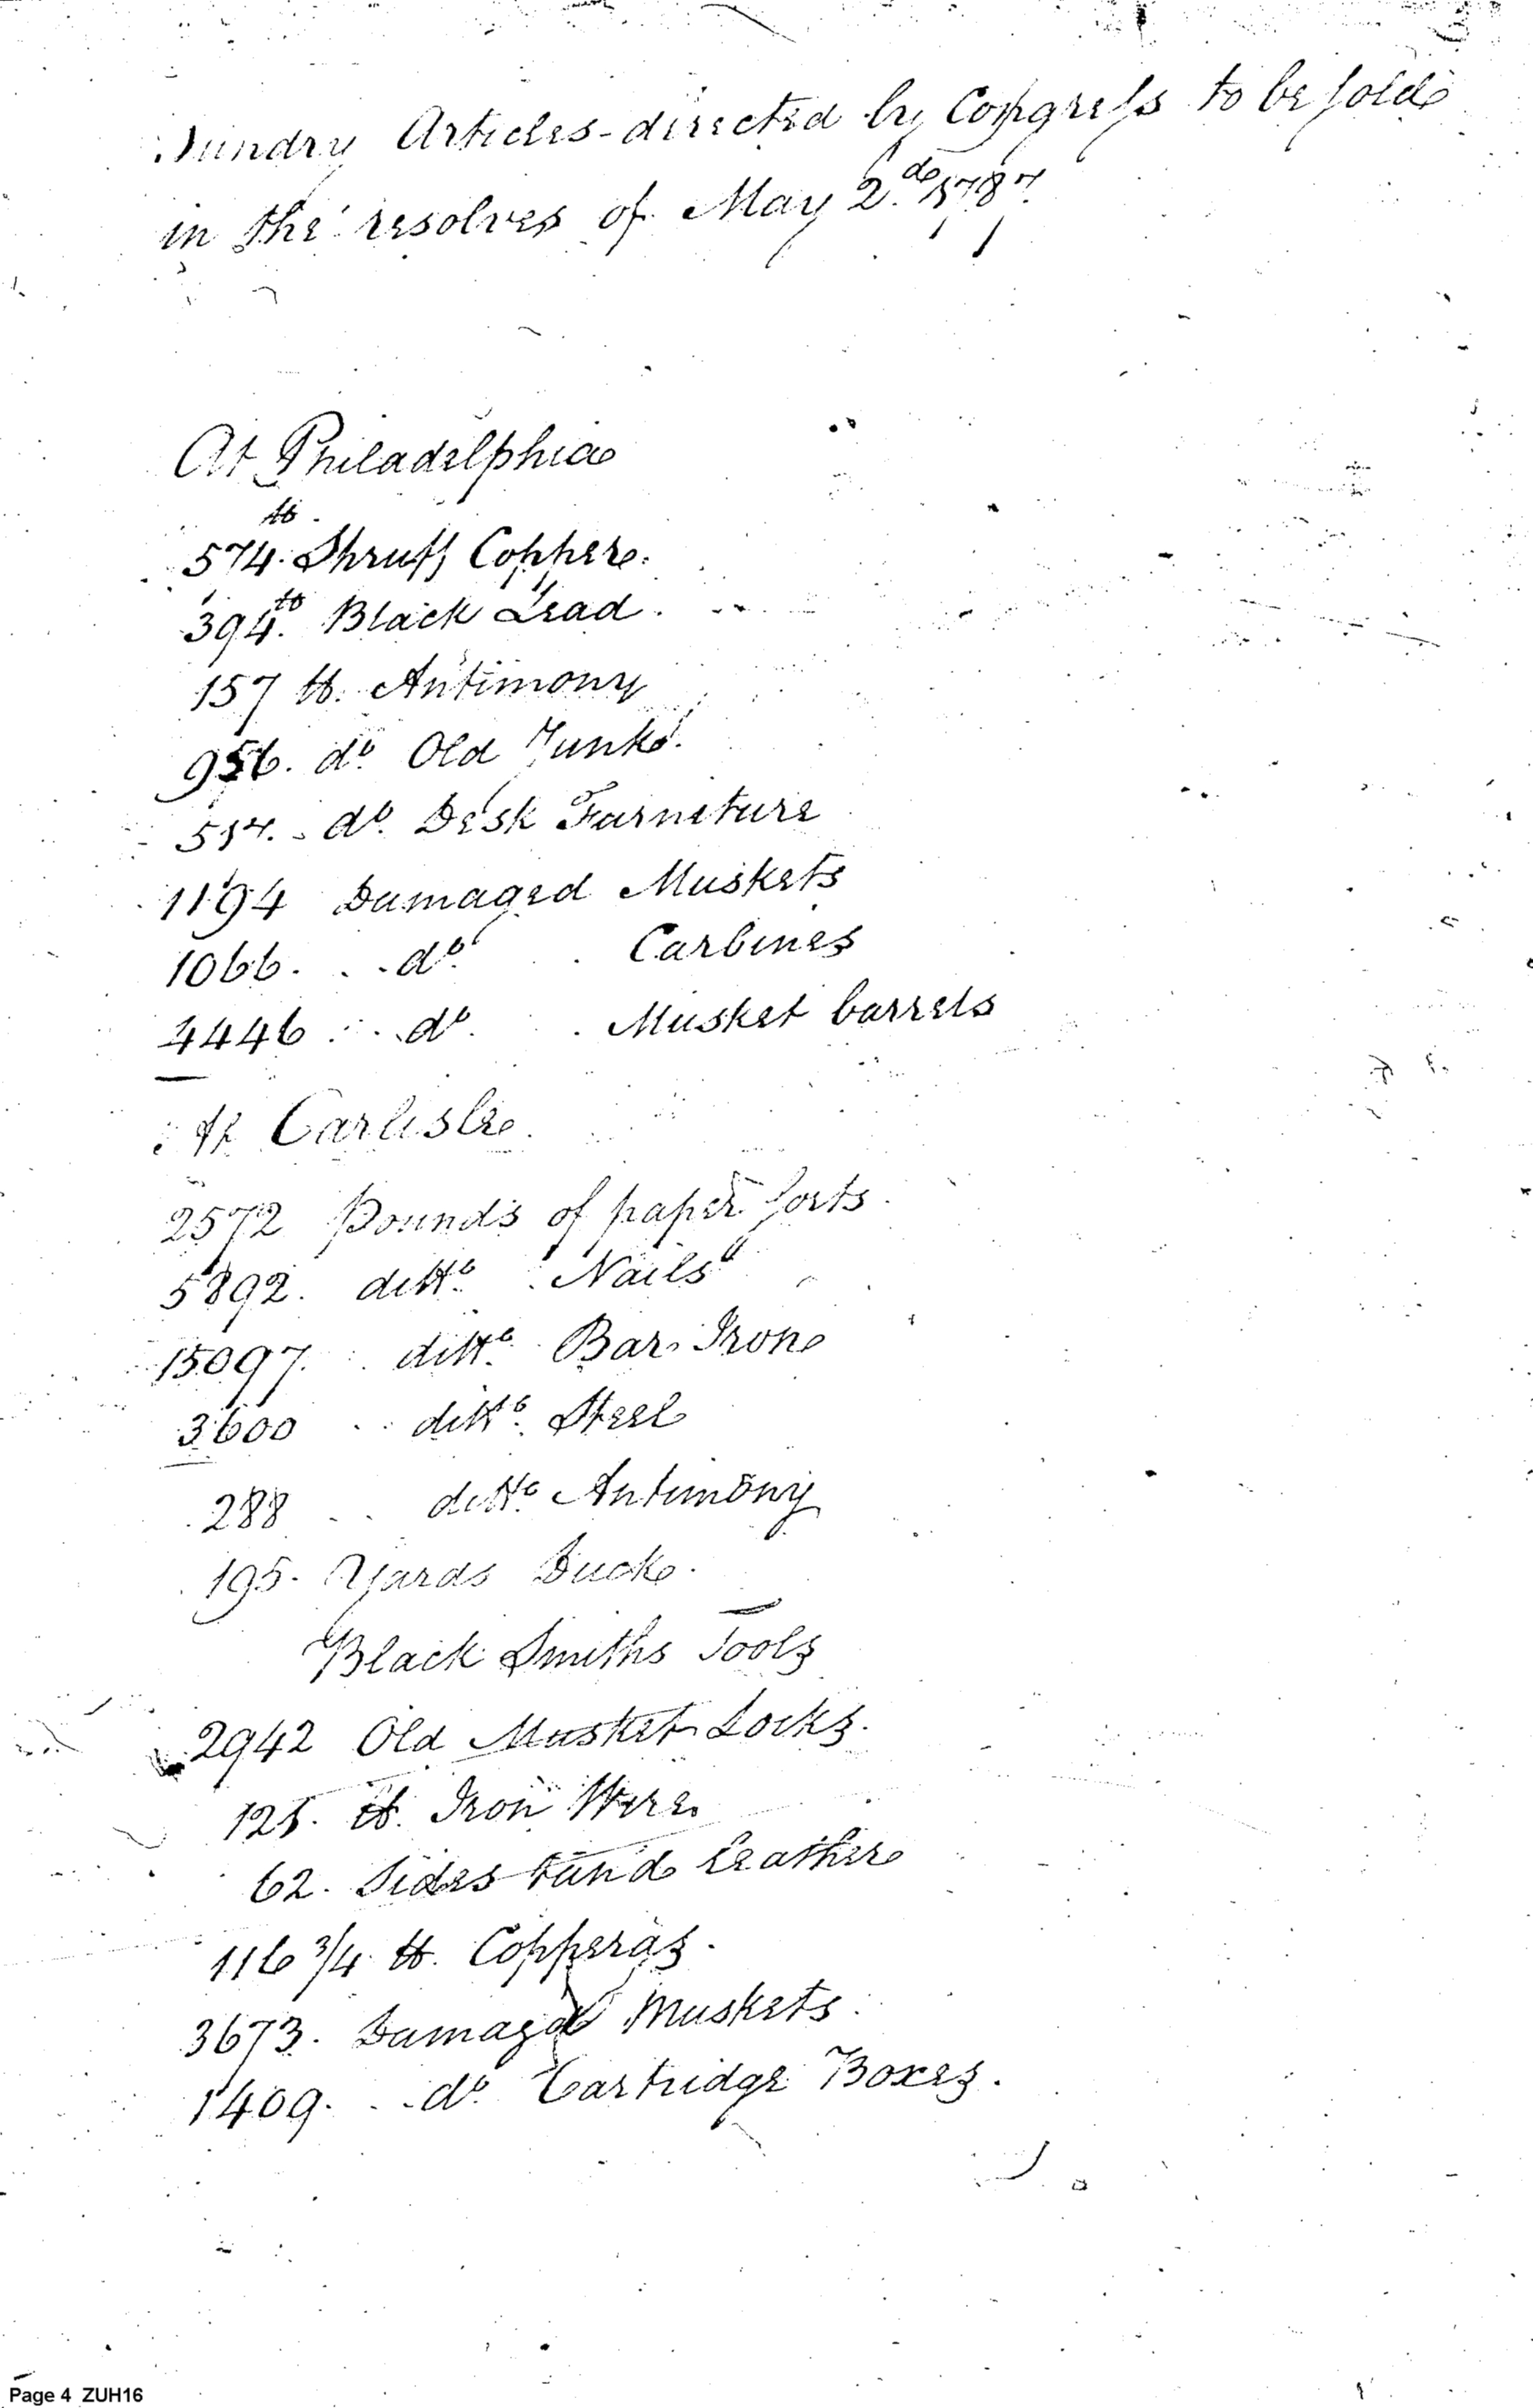 Sundry Articles directed by Congress to be sold
in the resolves of May 2.d 1787.
At Philadelphia
lb
574. Shruff Copper.
394. lb Black Lead.
157 lb. Antimony
956. do. Old Junk.
517. do. Desk Furneture
1194 Damaged Muskets
1066. . . do. . Carbines
4446 . . . do. . Musket barrels
At Carlisle.
2572 Pounds of paper sorts.
5892. ditto. Nails
15097. ditto. Bar Iron
3600 . . ditto. Steel
288 . . ditto. Antimony
195. Yards Duck.
Black Smiths Tools
2942 Old Musket Locks.
lb. Iron Wire.
62. Sides Leather
116 3/4 lb. Copperas.
3673. Damagd Muskets.
1409. . . do. Cartridge Boxes.
Page 4 ZUH16